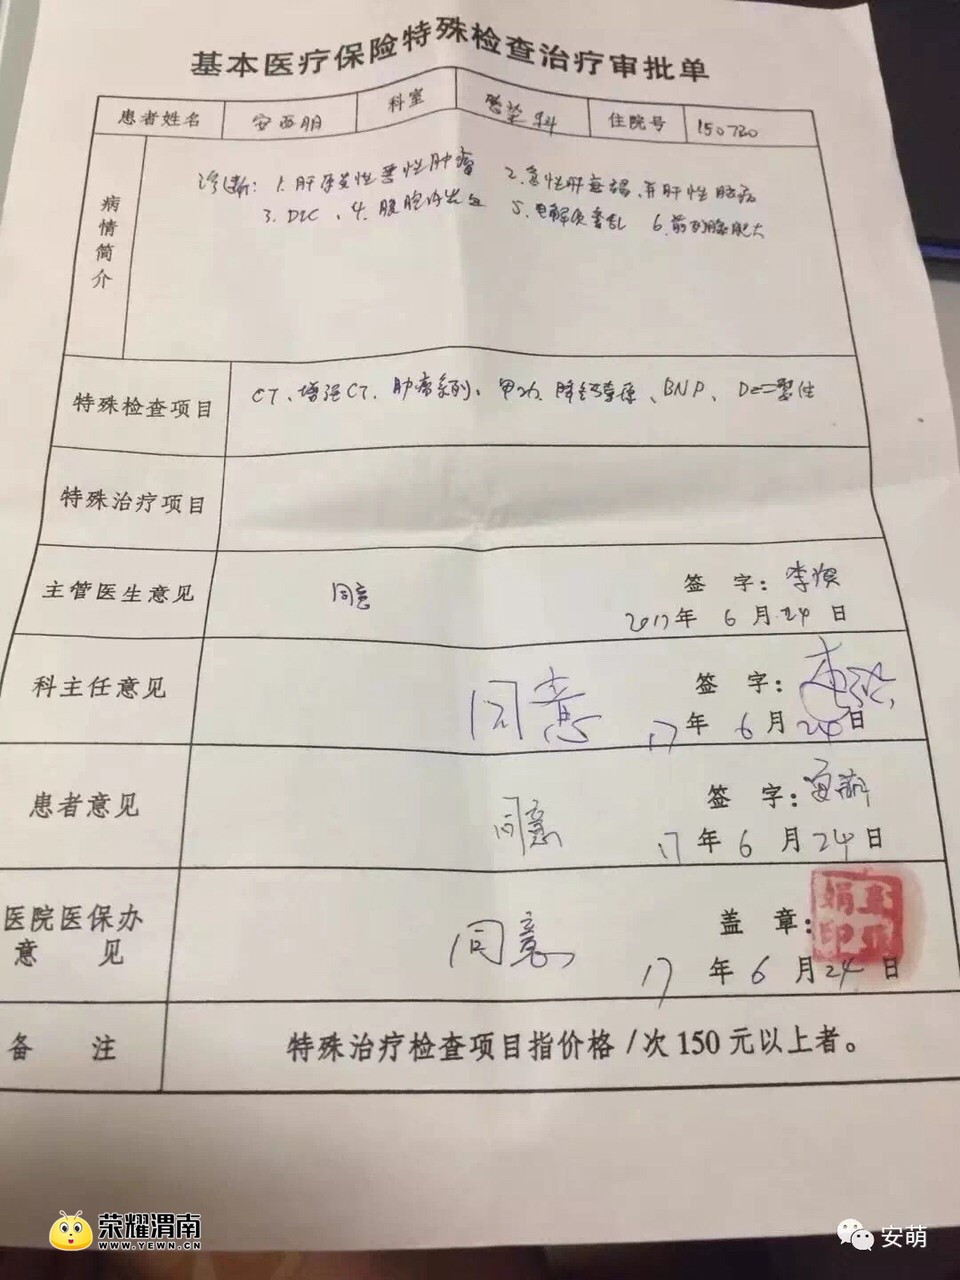 基本医疗保险特殊检查治疗审批单
患者姓名 安西朋 科室 感染科 住院号 150730
病情简介
诊断：1.肝原发性恶性肿瘤 2.急性肝衰竭，并肝性脑病
3.DIC、4.腹腔内出血 5.电解质紊乱 6.前列腺肥大
特殊检查项目 CT、增强CT、肿瘤系列、甲功、降钙素原、BNP、D-二聚体
特殊治疗项目
主管医生意见 同意 签 字：李
2017年 6月24日
科主任意见 同意 签 字：
17年 6月24日
患者意见 同意 签 字：安萌
17年 6月24日
医院医保办
意 见 同意 盖 章：
17年 6月24日
备 注 特殊治疗检查项目指价格/次150元以上者。
荣耀渭南
WWW.YEWN.CN
安萌